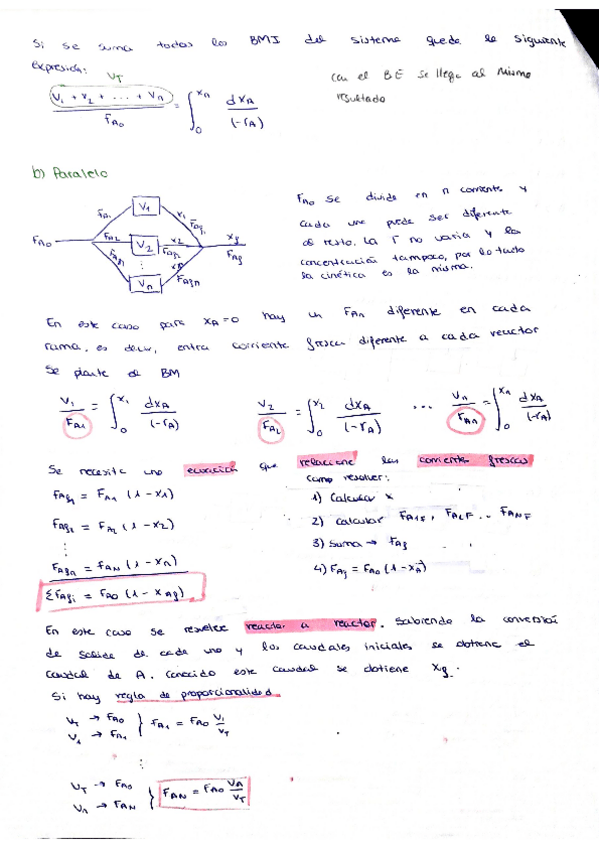 Si se suma todos los BMI del sistema queda la siguiente
expresión:
VT
con el BE se llega al mismo
resultado
V1 + V2 + .... + Vn / FA0 = ∫0^Xn dXA / (-rA)
b) Paralelo
FA0
FA1
V1
X1
FAf1
FA2
V2
X2
FAf2
Vn
FAfn
Xf
FAf
FA0 se divide en n corriente y
cada una puede ser diferente
al resto. La T no varia y la
concentración tampoco, por lo tanto
la cinética es la misma.
En este caso para XA=0 hay un FAn diferente en cada
rama, es decir, entra corriente fresca diferente a cada reactor
Se plante el BM
V1 / FA1 = ∫0^X1 dXA / (-rA)
V2 / FA2 = ∫0^X2 dXA / (-rA)
... Vn / FAn = ∫0^Xn dXA / (-rA)
Se necesita una ecuación que relacione las corriente frescas
FAf1 = FA1 (1 - X1)
FAf2 = FA2 (1 - X2)
⋮
FAfn = FAN (1 - Xn)
ΣFAfi = FA0 (1 - XAf)
como resolver:
1) Calcular X
2) calcular FA1F, FA2F .. FANF
3) suma → FAf
4) FAf = FA0 (1 - XA)
En este caso se resuelve reactor a reactor. Sabiendo la conversión
de salida de cada uno y los caudales iniciales se obtiene el
caudal de A. Conocido este caudal se obtiene Xf.
Si hay regla de proporcionalidad
VT → FA0
V1 → FA1
} FA1 = FA0 V1 / VT
⋮
VT → FA0
Vn → FAN
} FAN = FA0 Vn / VT